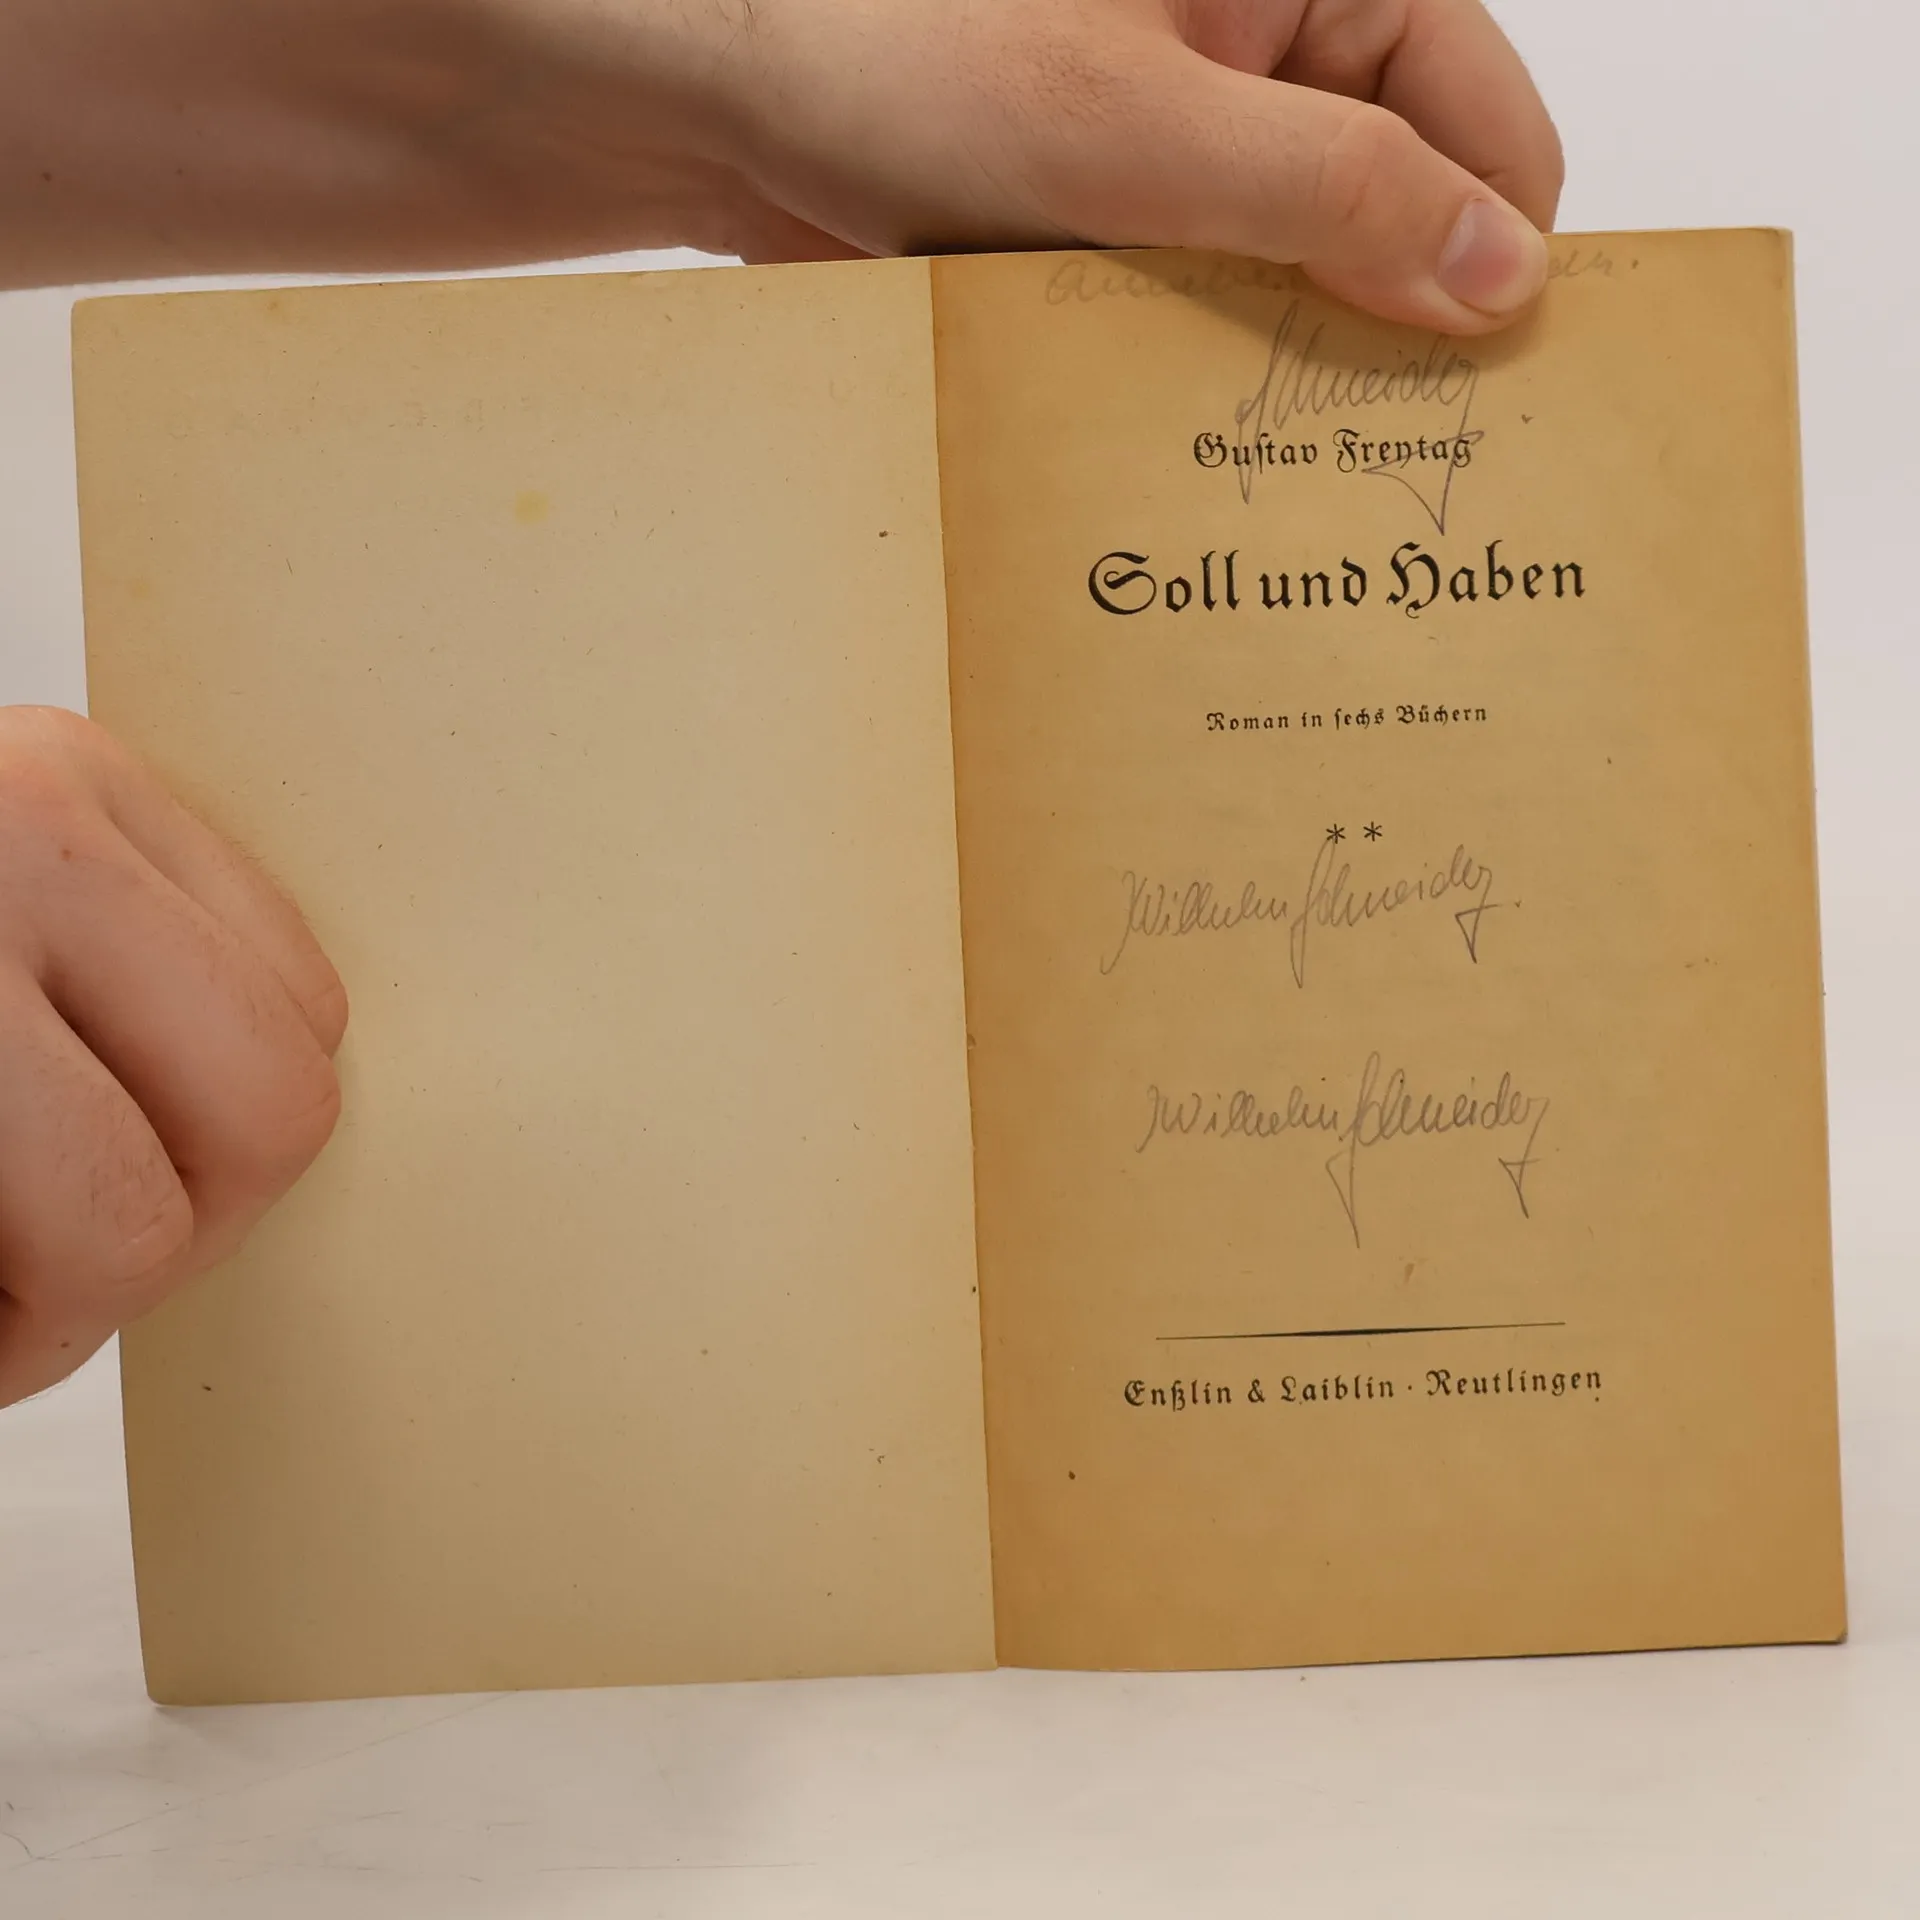 Schneider
Gustav Freytag
Soll und Haben
Roman in sechs Büchern
* *
Wilhelm Schneider.
Wilhelm Schneider
Enßlin & Laiblin · Reutlingen